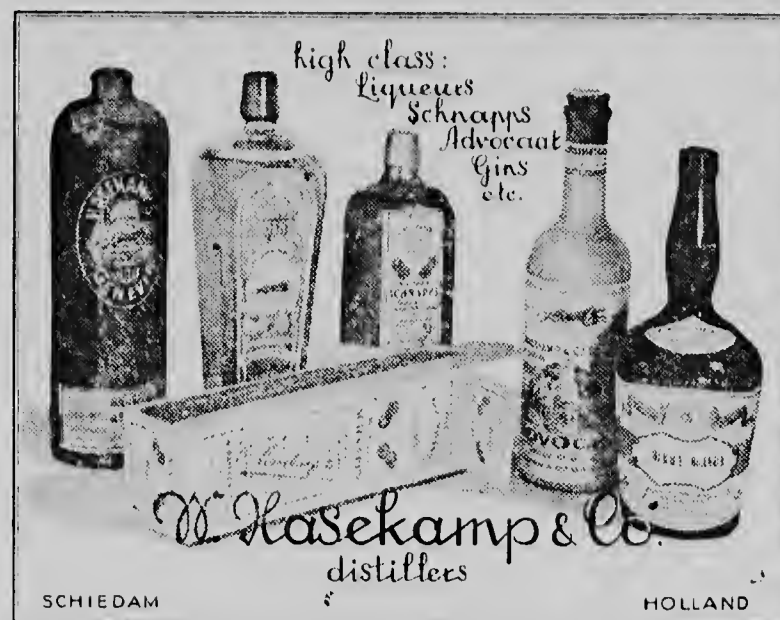 high class:
Liqueurs
Schnapps
Advocaat
Gins
etc.
SCHNAPPS
W. Hasekamp & Co.
distillers
SCHIEDAM
HOLLAND